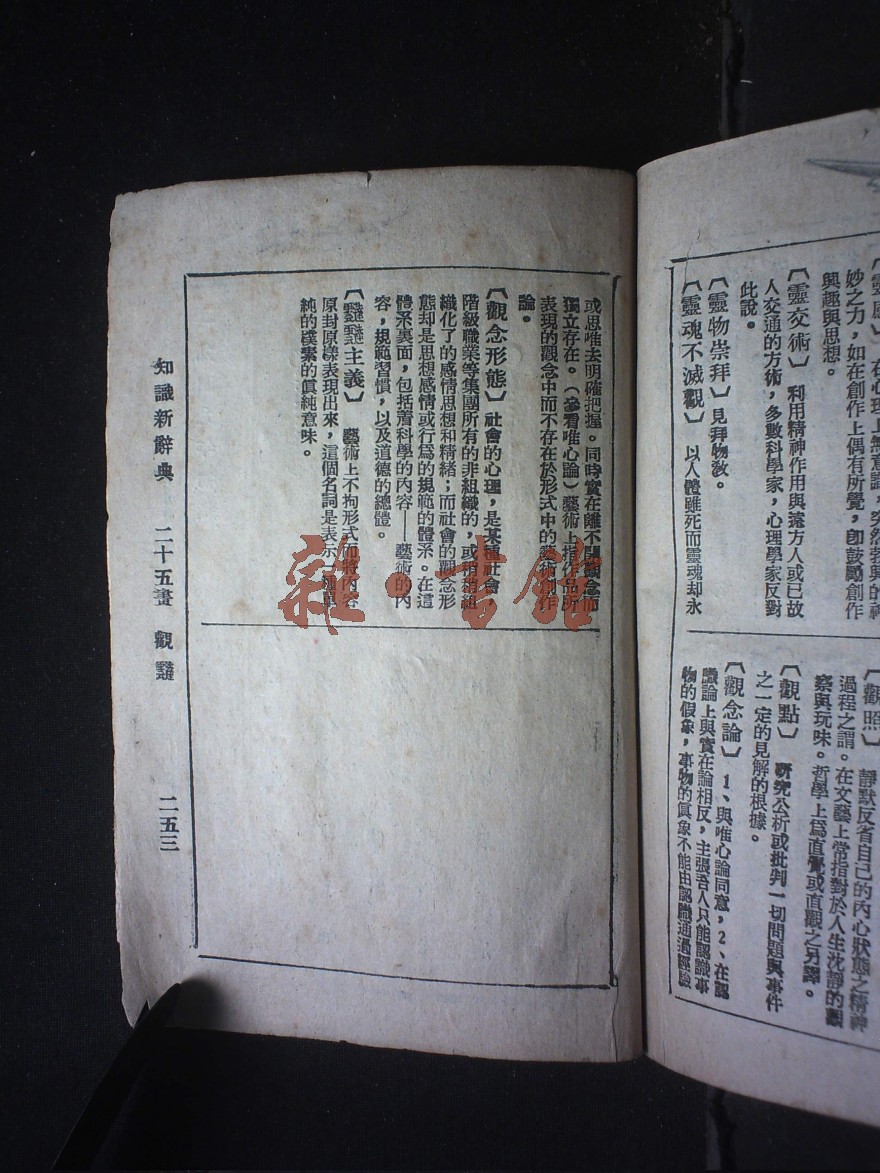 妙之力，如在創作上偶有所覺，卽鼓勵創作
興趣與思想。
〔靈交術〕 利用精神作用與遠方人或已故
人交通的方術，多數科學家，心理學家反對
此說。
〔靈物崇拜〕 見拜物敎。
〔靈魂不滅觀〕 以人體雖死而靈魂却永
〔觀照〕 靜默反省自己的內心狀態之精神
過程之謂。在文藝上常指對於人生沈靜的觀
察與玩味。哲學上爲直覺或直觀之另譯。
〔觀點〕 硏究公析或批判一切問題與事件
之一定的見解的根據。
〔觀念論〕 1、與唯心論同意，2、在認
識論上與實在論相反，主張吾人只能認識事
物的假象，事物的眞象不能由認識通過經驗
或思唯去明確把握。同時實在離不開觀念而
獨立存在。（參看唯心論）藝術上指作品所
表現的觀念中而不存在於形式中的藝術創作
論。
〔觀念形態〕 社會的心理，是某種社會，
階級職業等集團所有的非組織的，或稍稍組
織化了的感情思想和精緒；而社會的觀念形
態却是思想感情或行爲的規範的體系。在這
體系裏面，包括濟科學的內容——藝術的內
容，規範習慣，以及道德的總體。
主義〕 藝術上不拘形式而將內容
原封原樣表現出來，這個名詞是表示一種單
純的樸素的眞純意味。
知識新辭典 二十五畫 觀
二五三
雜·書館